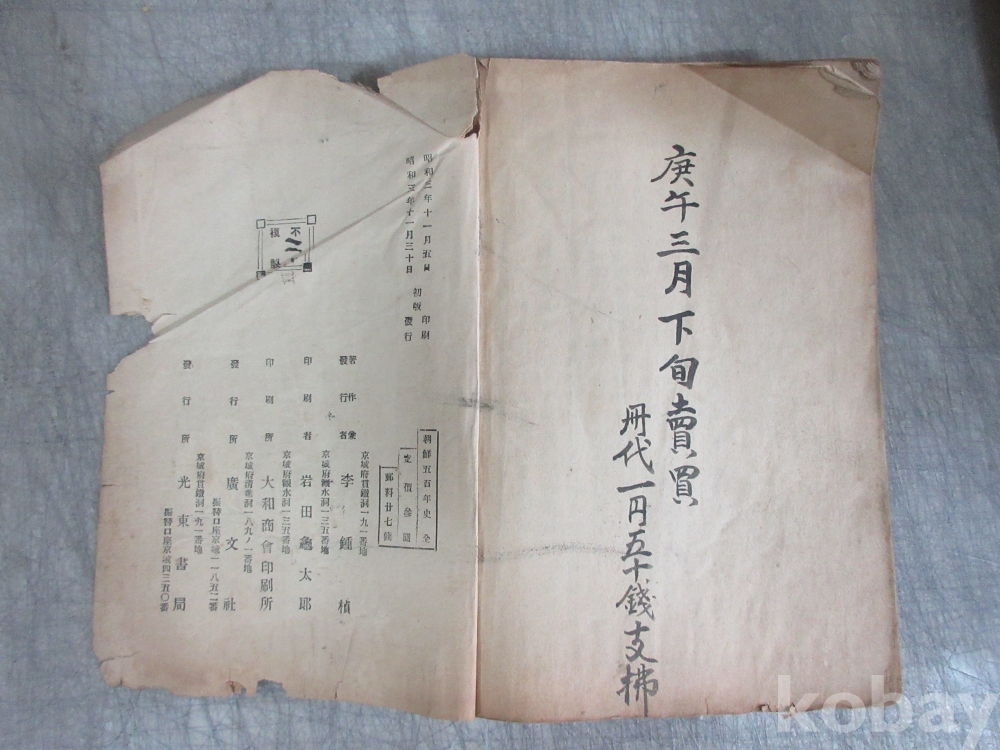 庚午三月下旬賣買
冊代一円五十錢支拂
朝鮮五百年史 全
定價參圓
郵料廿七錢
昭和三年十一月五日 印刷
昭和三年十一月三十日 初版發行
不
複
製
京城府貫鐵洞一九一番地
著作兼
發行者 李鍾楨
京城府觀水洞一三五番地
印刷者 岩田龜太郎
京城府觀水洞一三五番地
印刷所 大和商會印刷所
京城府清進洞一八九ノ一番地
發行所 廣文社
振替口座京城一一八五二番
京城府貫鐵洞一九一番地
發行所 光東書局
振替口座京城四三五〇番
kobay